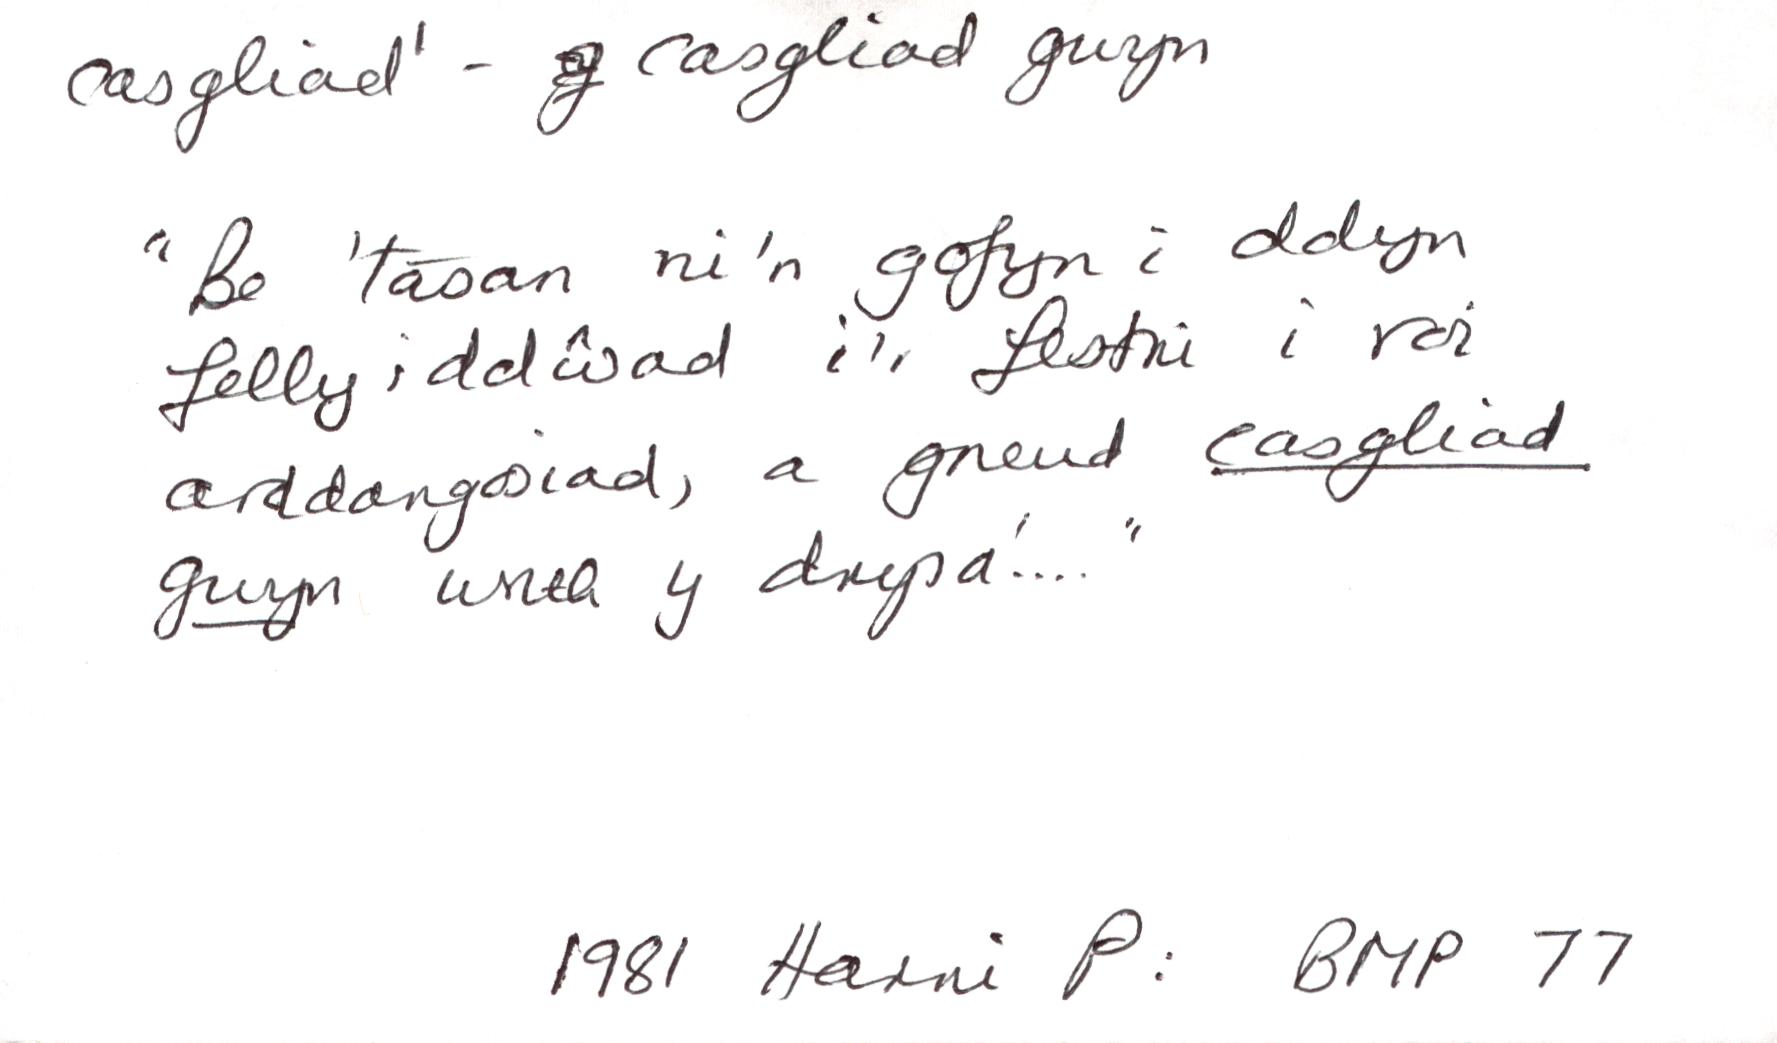 casgliad¹ - casgliad gwyn
"Be 'tasan ni'n gofyn i ddyn
felly i ddŵad i'r festri i roi
arddangosiad, a gneud casgliad
gwyn wrth y drysa'...."
1981 Harri P: BMP 77